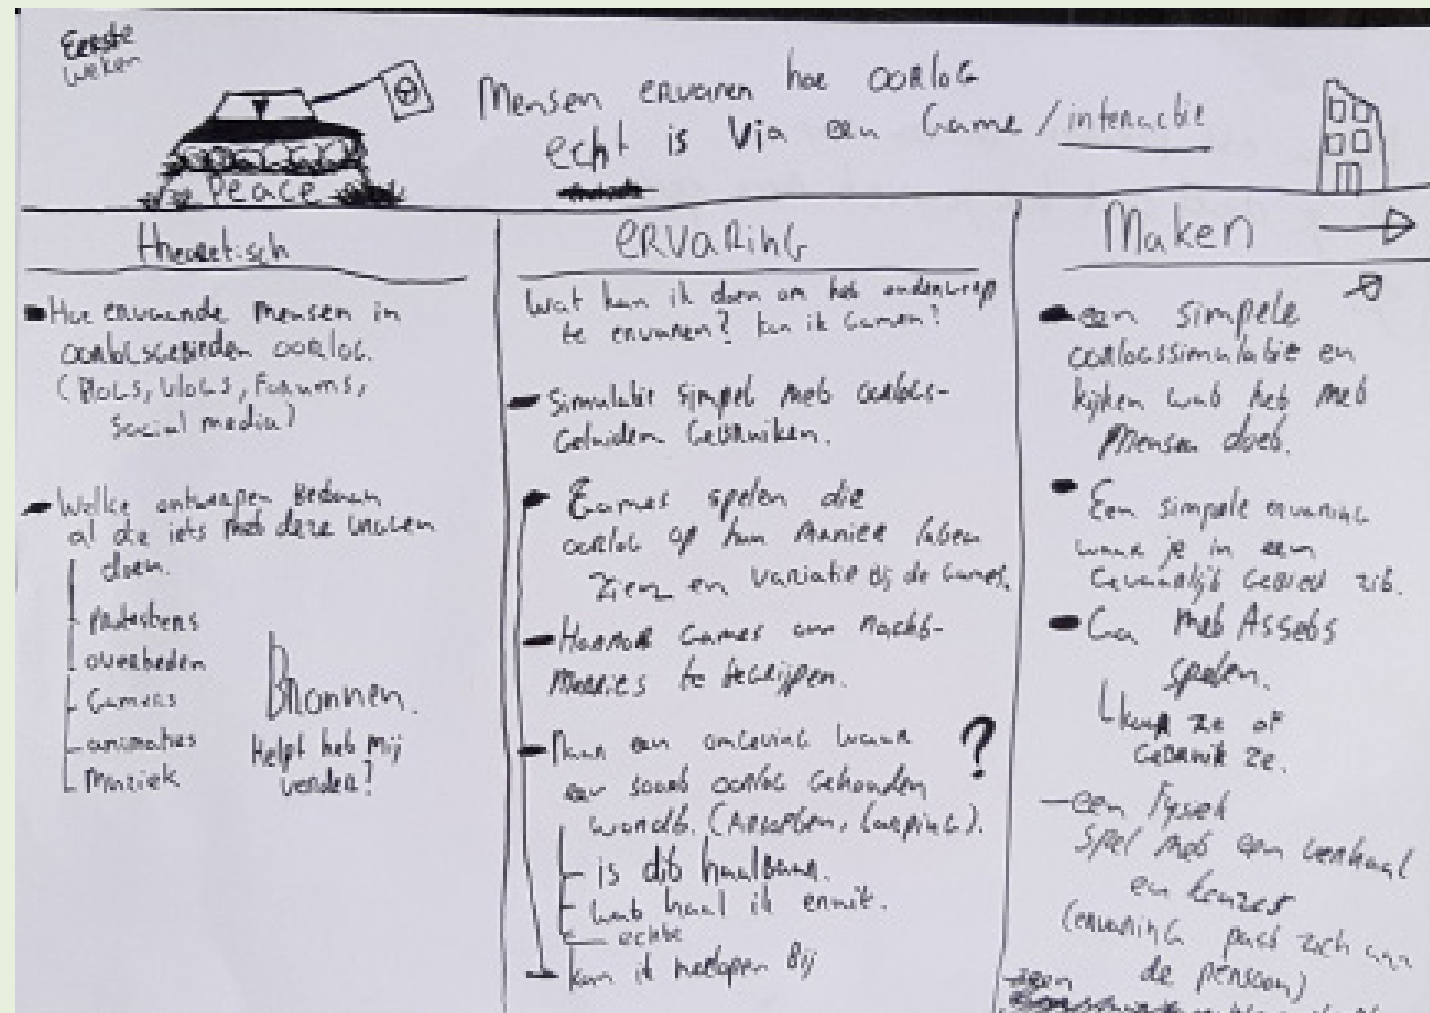 Eerste
weken
Mensen ervaren hoe oorlog
echt is via een Game / interactie
Peace
theoretisch
Hoe ervaarde mensen in
oorlogsgebieden oorlog.
(Blogs, vlogs, Forums,
social media)
Welke ontwerpen bestaan
al die iets met deze vragen
doen.
protestens
overheden
Games
animaties
Muziek
Bronnen.
Helpt het mij
verder?
ERVARING
Wat kan ik doen om het onderwerp
te ervaren? kan ik Gamen?
Simulatie simpel met oorlogs-
Geluiden Gebruiken.
Games spelen die
oorlog op hun manier laten
zien en variatie bij de Games.
Horror Games om nacht-
merries te begrijpen.
Naar een omgeving waar ?
een soort oorlog gehouden
wordt. (Airsoften, Larping).
is dit haalbaar.
wat haal ik eruit.
echte
kan ik meelopen Bij
Maken
een simpele
oorlogssimulatie en
kijken wat het met
Mensen doet.
Een simpele ervaring
waar je in een
Gevaarlijk Gebied zit.
Ga met Assets
spelen.
keur ze of
Gebruik ze.
een Fysiek
spel met een verhaal
en keuzes
(ervaring past zich aan
de persoon)